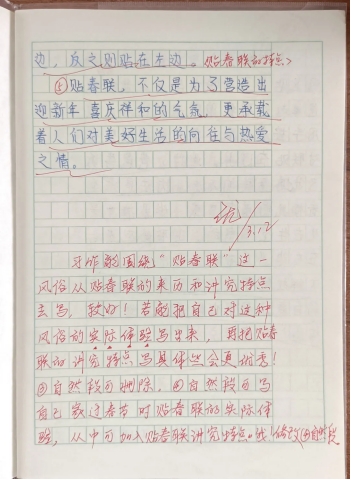 边，反之则贴在左边。(贴春联的特点)
⑤贴春联，不仅是为了营造出
迎新年喜庆祥和的气氛，更承载
着人们对美好生活的向往与热爱
之情。
优
3.12
习作能围绕“贴春联”这一
风俗从贴春联的来历和讲究特点
去写，较好！若能把自己对这种
风俗的实际体验写出来，再把贴春
联的讲究特点写具体些会更优秀！
自然段可删除，自然段可写
自己家过春节时贴春联的实际体
验，从中可加入贴春联讲究特点。